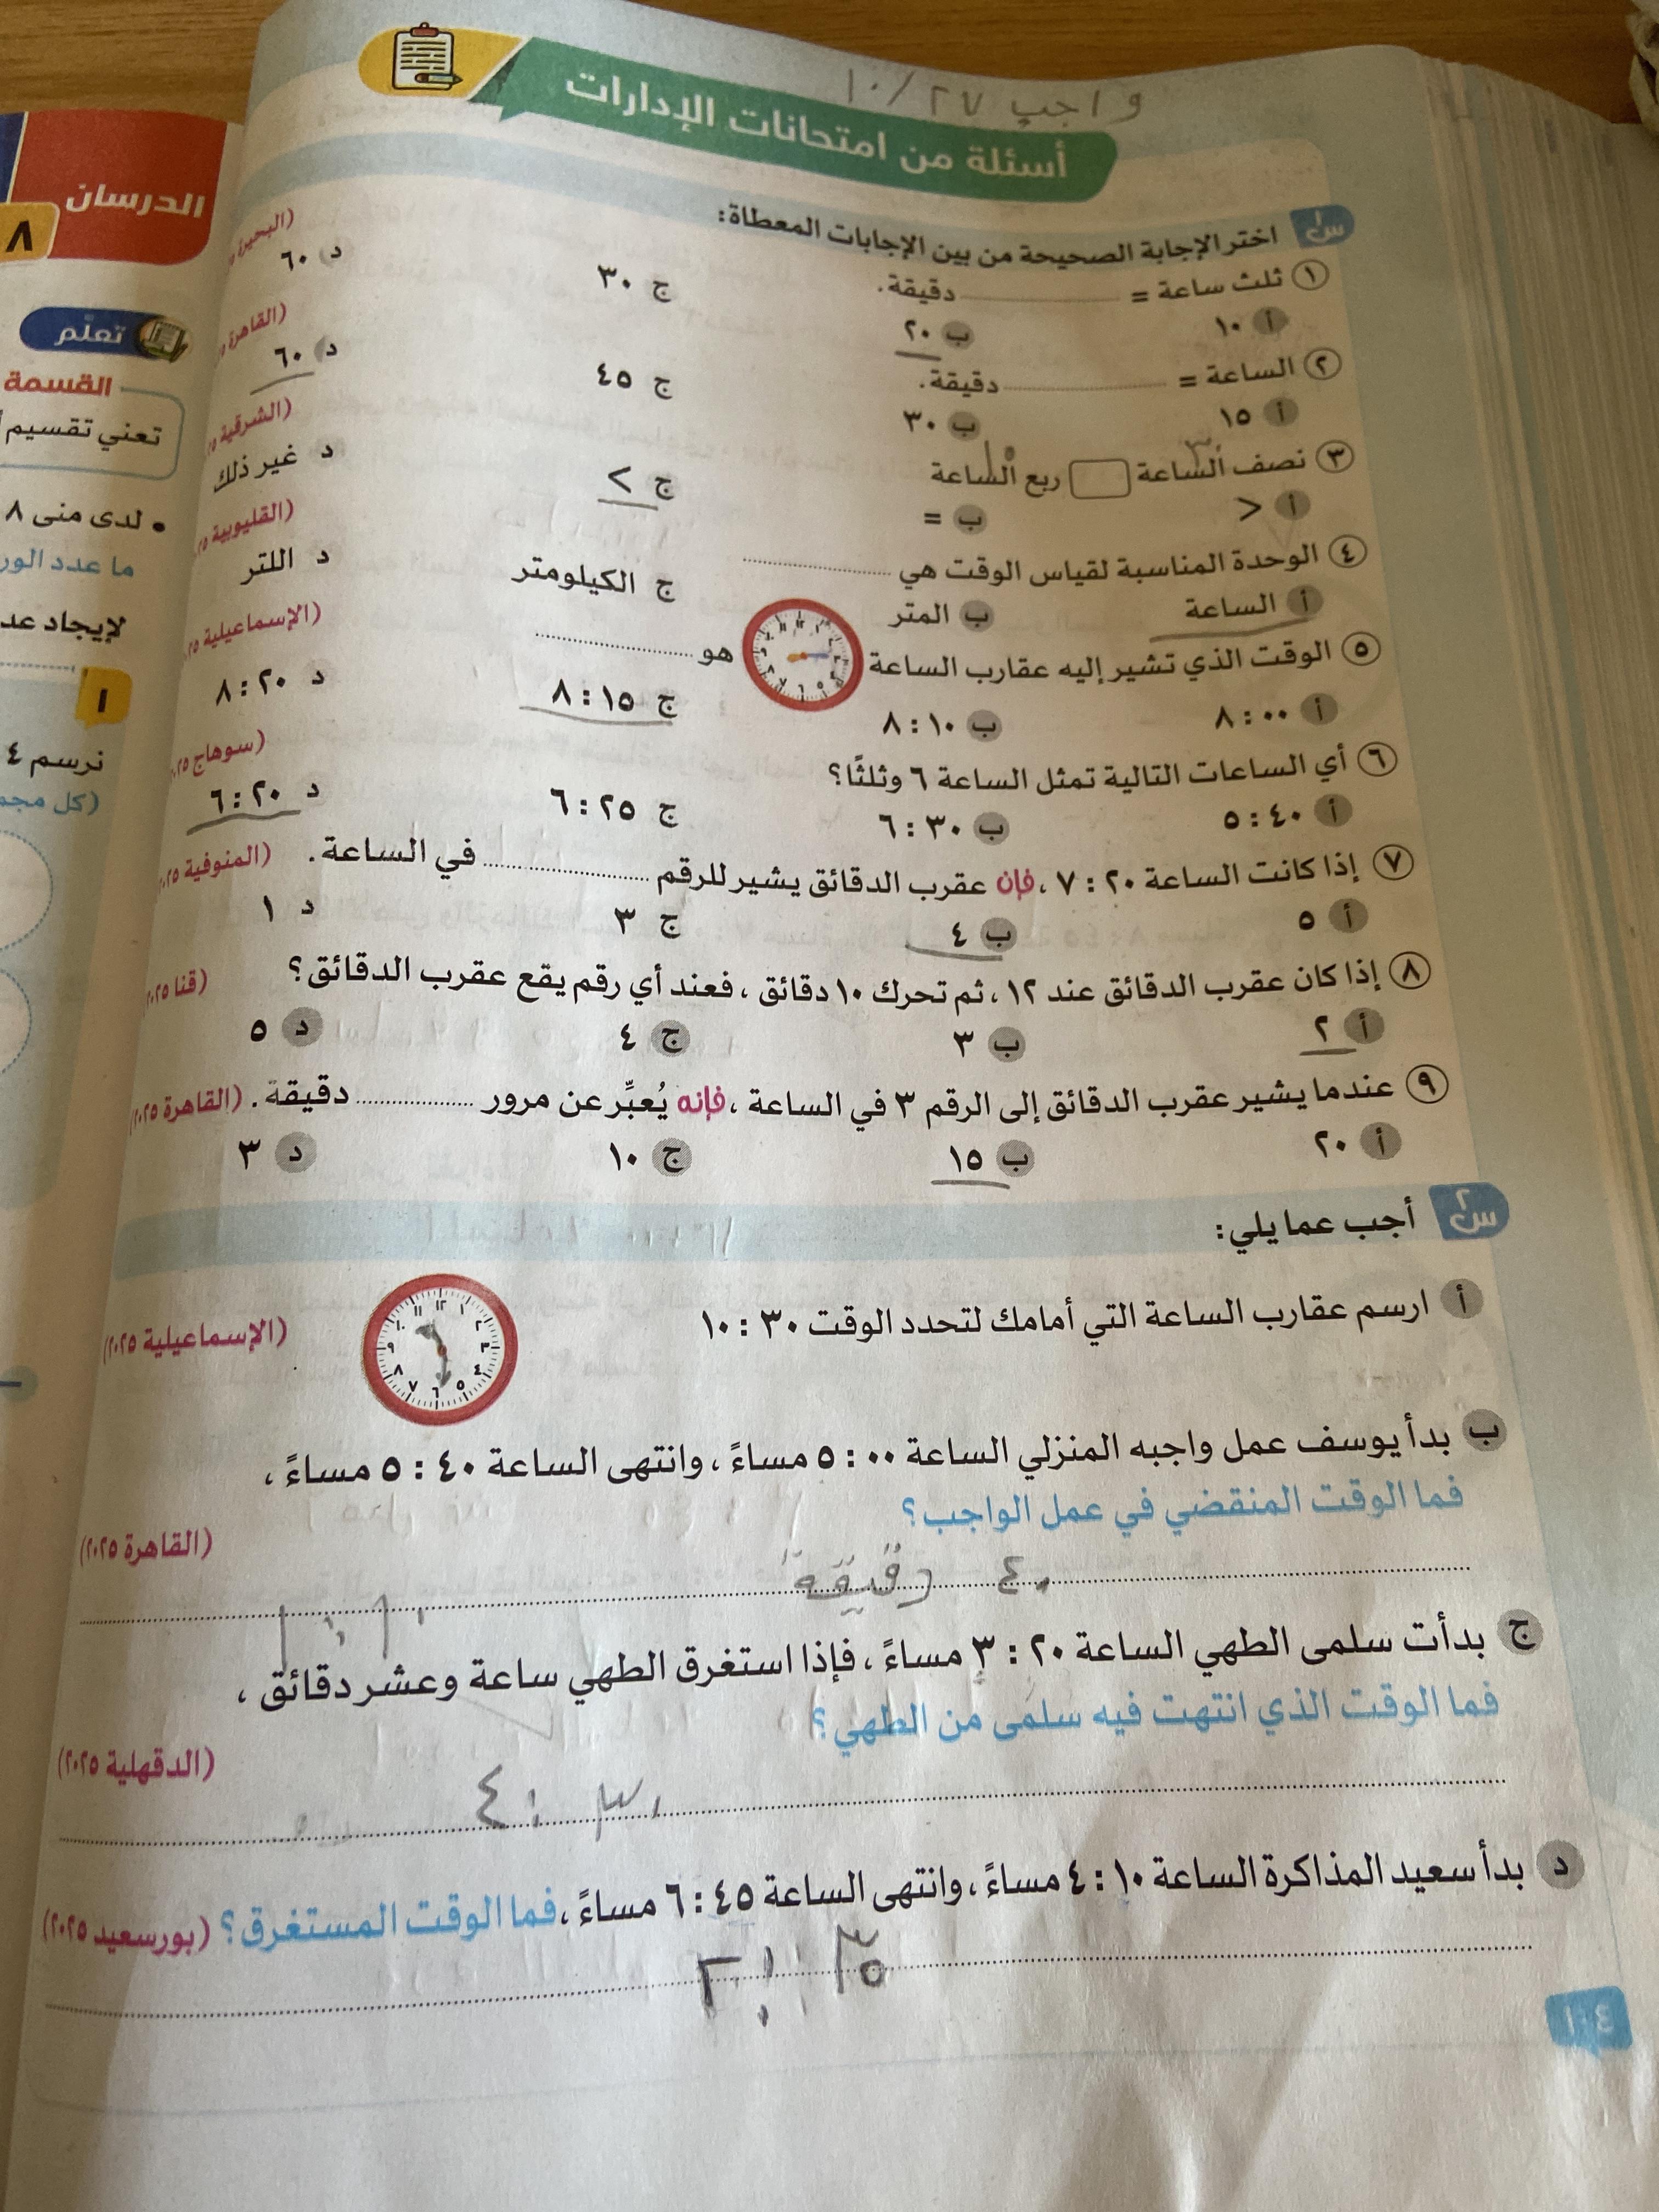 واجب ٢٧/١٠
أسئلة من امتحانات الإدارات
س١ اختر الإجابة الصحيحة من بين الإجابات المعطاة:
١ ثلث ساعة = ........ دقيقة. (البحيرة
أ ١٠ ب ٢٠ ج ٣٠ د ٦٠
٢ الساعة = ........ دقيقة. (القاهرة
أ ١٥ ب ٣٠ ج ٤٥ د ٦٠
٣ نصف الساعة ربع الساعة (الشرقية
أ < ب = ج > د غير ذلك
٤ الوحدة المناسبة لقياس الوقت هي ........ (القليوبية
أ الساعة ب المتر ج الكيلومتر د اللتر
٥ الوقت الذي تشير إليه عقارب الساعة هو ........ (الإسماعيلية
أ ٠٠ : ٨ ب ١٠ : ٨ ج ١٥ : ٨ د ٢٠ : ٨
٦ أي الساعات التالية تمثل الساعة ٦ وثلثًا؟ (سوهاج
أ ٤٠ : ٥ ب ٣٠ : ٦ ج ٢٥ : ٦ د ٢٠ : ٦
٧ إذا كانت الساعة ٢٠ : ٧ ، فإن عقرب الدقائق يشير للرقم ........ في الساعة. (المنوفية ٢٠٢٥
أ ٥ ب ٤ ج ٣ د ١
٨ إذا كان عقرب الدقائق عند ١٢ ، ثم تحرك ١٠ دقائق ، فعند أي رقم يقع عقرب الدقائق؟ (قنا ٢٠٢٥
أ ٢ ب ٣ ج ٤ د ٥
٩ عندما يشير عقرب الدقائق إلى الرقم ٣ في الساعة ، فإنه يُعبِّر عن مرور ........ دقيقة. (القاهرة ٢٠٢٥)
أ ٢٠ ب ١٥ ج ١٠ د ٣
س٢ أجب عما يلي:
أ ارسم عقارب الساعة التي أمامك لتحدد الوقت ٣٠ : ١٠ (الإسماعيلية ٢٠٢٥)
١٢ ١ ٢ ٣ ٤ ٥ ٦ ٧ ٨ ٩ ١٠ ١١
ب بدأ يوسف عمل واجبه المنزلي الساعة ٠٠ : ٥ مساءً ، وانتهى الساعة ٤٠ : ٥ مساءً ،
فما الوقت المنقضي في عمل الواجب؟ (القاهرة ٢٠٢٥)
٤٠ دقيقة
ج بدأت سلمى الطهي الساعة ٢٠ : ٣ مساءً ، فإذا استغرق الطهي ساعة وعشر دقائق ،
فما الوقت الذي انتهت فيه سلمى من الطهي؟ (الدقهلية ٢٠٢٥)
٣٠ : ٤
د بدأ سعيد المذاكرة الساعة ١٠ : ٤ مساءً ، وانتهى الساعة ٤٥ : ٦ مساءً ، فما الوقت المستغرق؟ (بورسعيد ٢٠٢٥)
٣٥ : ٢
١٠٤
الدرسان
٨
تعلّم
القسمة
تعني تقسيم
• لدى منى ٨
ما عدد
لإيجاد
١
نرسم ٤
(كل